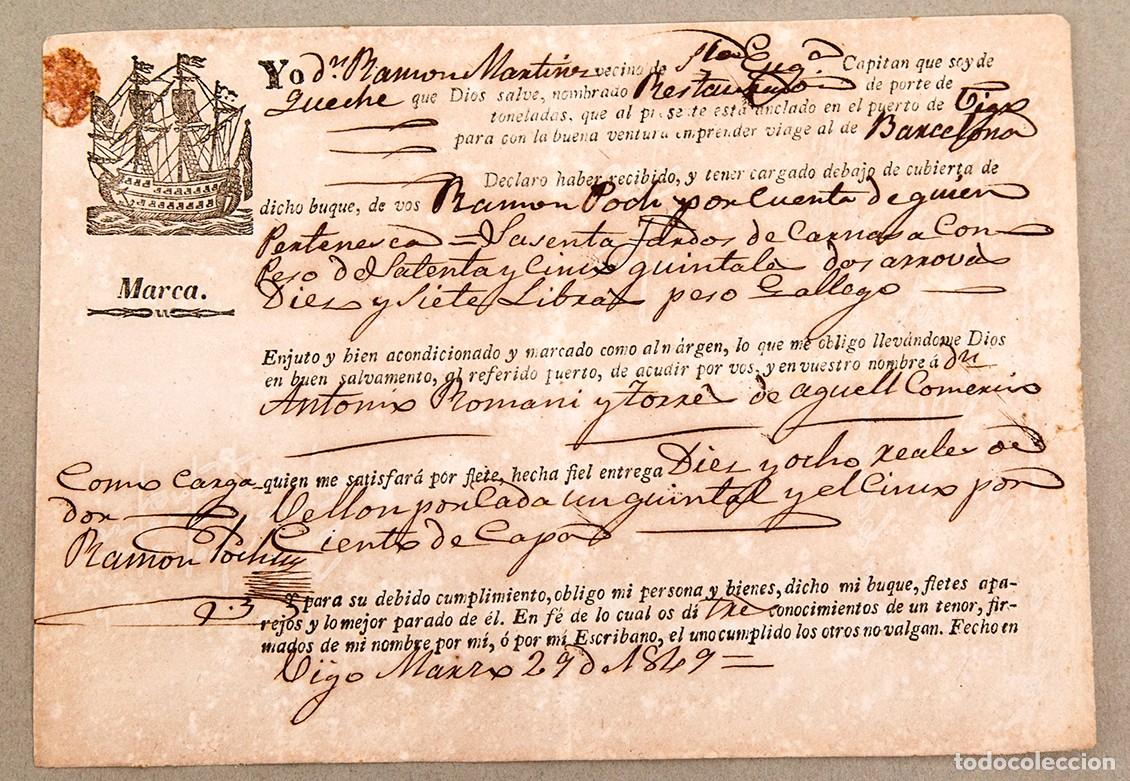 Yo dn. Ramon Martinez vecino de Sta Euga. Capitan que soy de
Queche que Dios salve, nombrado Restaurador de porte de
toneladas, que al presente está anclado en el puerto de Vigo
para con la buena ventura emprender viage al de Barcelona
Declaro haber recibido, y tener cargado debajo de cubierta de
dicho buque, de vos Ramon Poch por cuenta de quien
Pertenesca = Sasenta fardos de Carnasa Con
Peso de Satenta y Cinco quintales dos arrovas
Marca.
Diez y Siete Libras peso Gallego
Enjuto y bien acondicionado y marcado como al márgen, lo que me obligo llevándome Dios
en buen salvamento, al referido puerto, de acudir por vos, y en vuestro nombre á dn
Antonio Romani y Torres de aquell Comercio
quien me satisfará por flete, hecha fiel entrega Diez y ocho reales de
Vellon por Cada un quintal y el Cinco por
Ciento de Capa
Como Carga-
dor
Ramon Poch
2.3
Y para su debido cumplimiento, obligo mi persona y bienes, dicho mi buque, fletes apa-
rejos y lo mejor parado de él. En fé de lo cual os di tres conocimientos de un tenor, fir-
mados de mi nombre por mí, ó por mi Escribano, el uno cumplido los otros no valgan. Fecho en
Vigo Marzo 29 de 1849 =
todocoleccion